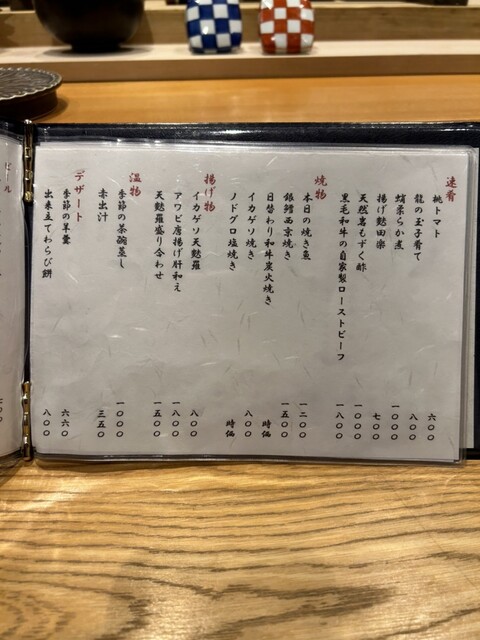 速肴
桃トマト 六〇〇
龍の玉子肴て 八〇〇
蛸柔らか煮 一〇〇〇
揚げ麩田楽 七〇〇
天然岩もずく酢 一〇〇〇
黒毛和牛の自家製ローストビーフ 一八〇〇
焼物
本日の焼き魚 一二〇〇
銀鱈西京焼き 一五〇〇
日替わり和牛炭火焼き 時価
イカゲソ焼き 八〇〇
ノドグロ塩焼き 時価
揚げ物
イカゲソ天麩羅 八〇〇
アワビ唐揚げ肝和え 一八〇〇
天麩羅盛り合わせ 一五〇〇
温物
季節の茶碗蒸し 一〇〇〇
赤出汁 三五〇
デザート
季節の羊羹 六六〇
出来立てわらび餅 八〇〇